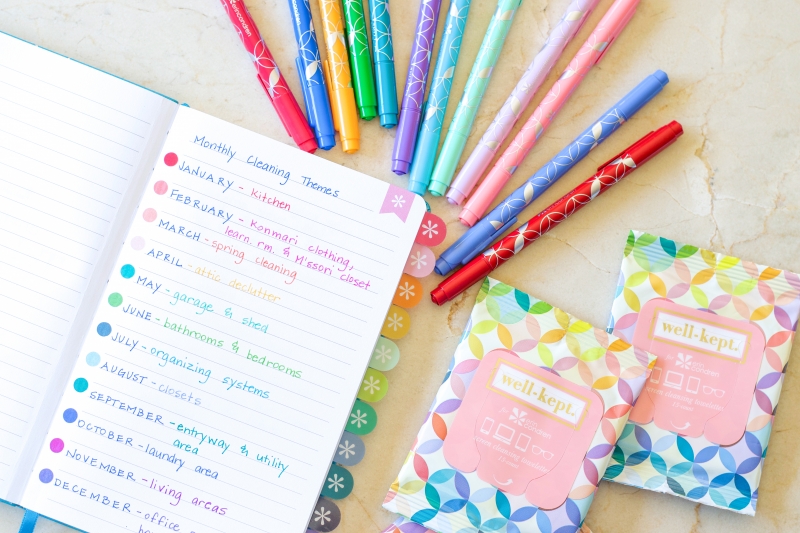 Monthly Cleaning Themes
JANUARY - kitchen
FEBRUARY - Konmari clothing,
learn. rm. & M'ssori closet
MARCH - spring cleaning
APRIL - attic declutter
MAY - garage & shed
JUNE - bathrooms & bedrooms
JULY - organizing systems
AUGUST - closets
SEPTEMBER - entryway & utility
area
OCTOBER - laundry area
NOVEMBER - living areas
DECEMBER - office
erincondren
well-kept.
for
erincondren
screen cleaning towelettes
well-kept.
for
condren
screen cleaning towelettes